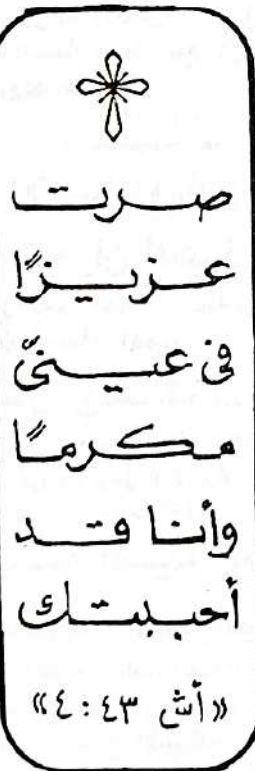 صرت
عزيزًا
فى عينىَّ
مكرمًا
وأنا قد
أحببتك
«أش ٤٣ : ٤»